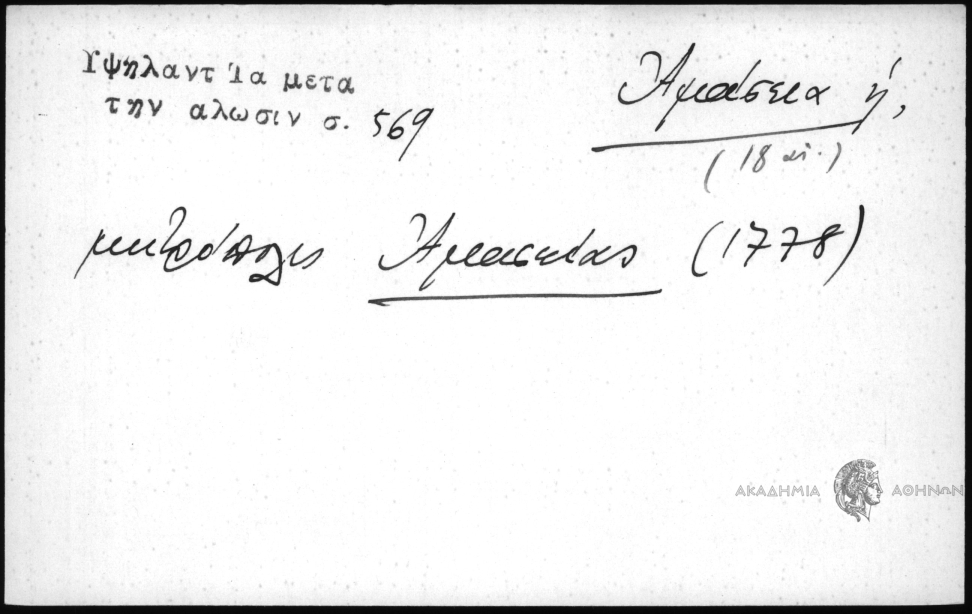 Υψηλαντ Ἰα μετα
την αλωσιν σ. 569
Ἀμάσεια ἡ,
(18 αἰ.)
μητρόπολις Ἀμασείας (1778)
ΑΚΑΔΗΜΙΑ ΑΘΗΝΩΝ